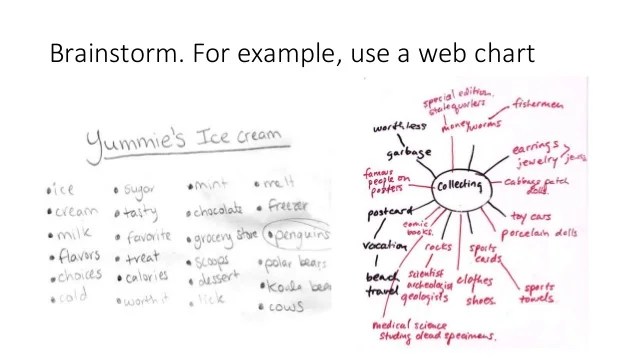 Brainstorm. For example, use a web chart
Yummie's Ice cream
• ice
• cream
• milk
• flavors
• choices
• cold
• sugar
• tasty
• favorite
• treat
• calories
• worth it
• mint
• chocolate
• grocery store
• scoops
• dessert
• lick
• melt
• freezer
• penguins
• polar bears
• koala bea
• cows
special edition,
statequarters
fishermen
money
worms
worthless
garbage
earrings
jewelry
famous
people on
posters
Collecting
cabbage patch
dolls
postcard
comic
books.
toy cars
porcelain dolls
vacation
rocks
sports
cards
beach
travel
scientist
archeologist
geologists
clothes
shoes
sports
towels
medical science
studing dead specimens.